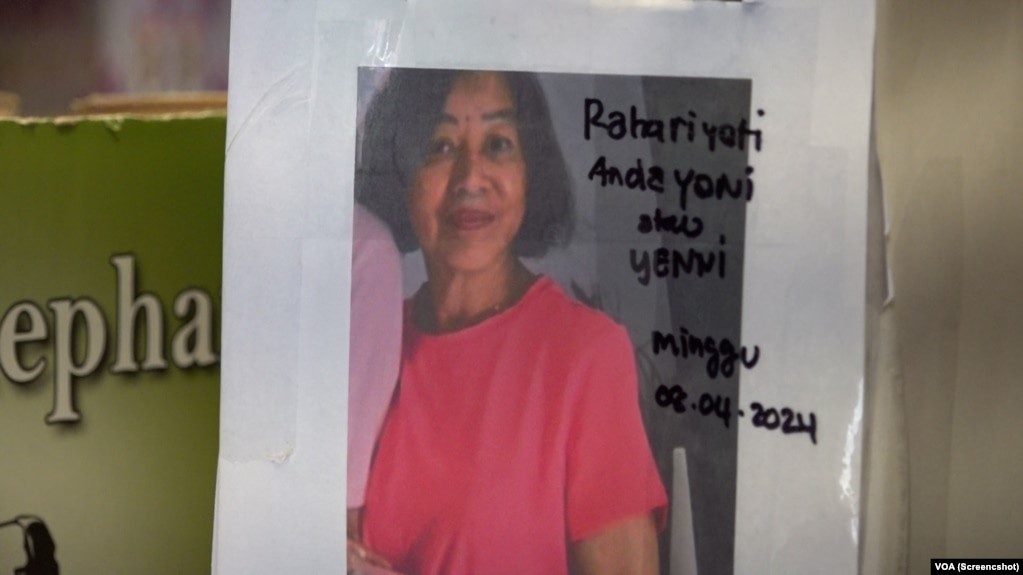 epha
Rahariyati
Anda YONi
atau
YENNi
Minggu
08.04.2024
VOA (Screencshot)